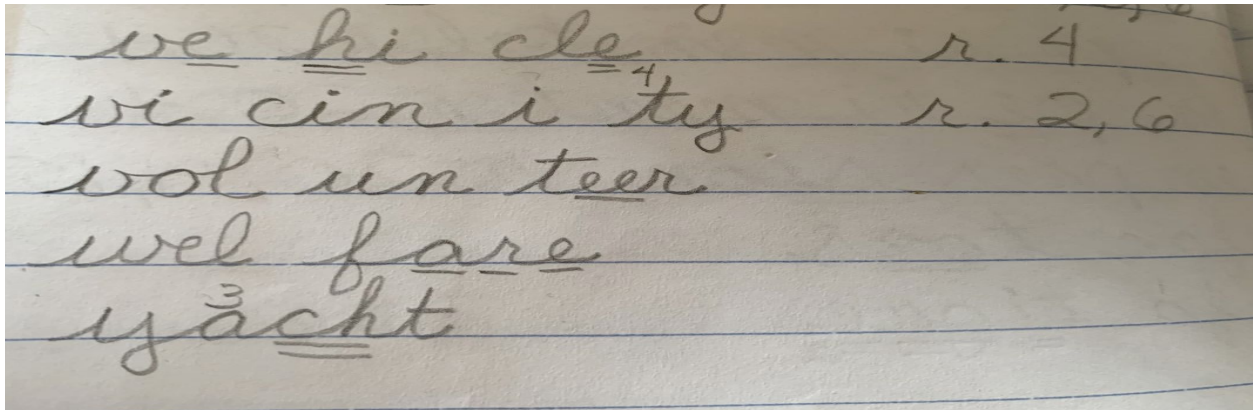 ve hi cle r. 4
vi cin i ⁴ty r. 2, 6
vol un teer
wel fare
y³acht